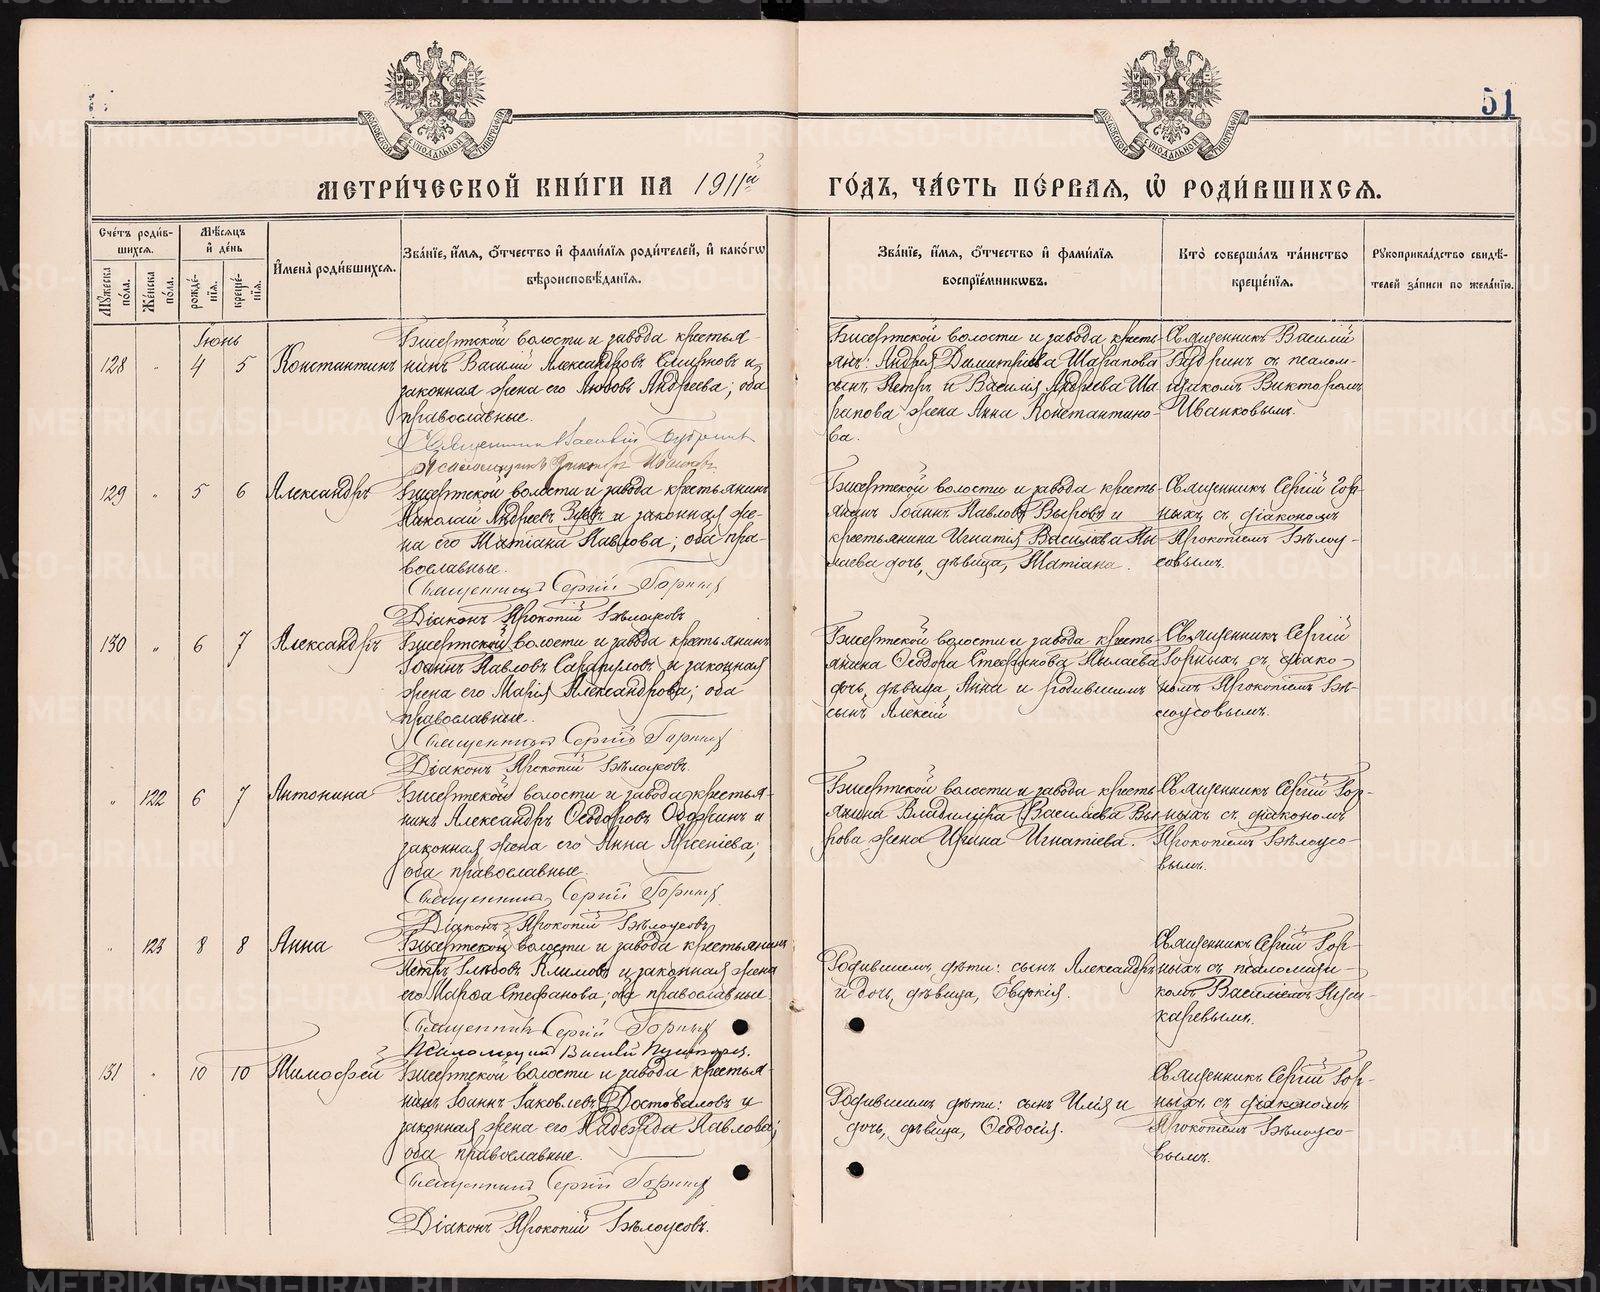 51
МЕТРИ́ЧЕСКОЙ КНИ́ГИ НА 1911й ГО́ДЪ, ЧА́СТЬ ПЕ́РВАЯ, Ѡ РОДИ́ВШИХСЯ.
Сче́тъ роди́в-
шихся.
Му́жеска по́ла.
Же́нска по́ла.
Мѣ́сяцъ
и де́нь
рожде́-
нїя.
креще́-
нїя.
Имена̀ роди́вшихся.
Зва́нїе, и́мя, о́тчество и фами́лїя роди́телей, и како́гѡ
вѣроисповѣ́данїя.
Зва́нїе, и́мя, о́тчество и фами́лїя
воспрїе́мникѡвъ.
Кто̀ соверша́лъ та́инство
креще́нїя.
Рꙋкоприкла́дство свидѣ́-
телей за́писи по жела́нїю.
Іюнь
128 " 4 5 Константинъ
Бисертской волости и завода крестья-
нинъ Василій Александровъ Смирновъ и
законная жена его Любовь Андреева; оба
православные.
Священникъ Василій Будринъ
Псаломщикъ Викторъ Иванковъ
Бисертской волости и завода кресть-
янъ: Андрея Димитріева Шарапова
сынъ Петръ и Василія Андреева Ша-
рапова жена Анна Константино-
ва.
Священникъ Василій
Будринъ съ псалом-
щикомъ Викторомъ
Иванковымъ.
129 " 5 6 Александръ
Бисертской волости и завода крестьянинъ
Николай Андреевъ Зуевъ и законная же-
на его Татіана Павлова; оба пра-
вославные.
Священникъ Сергій Горныхъ
Діаконъ Прокопій Бѣлоусовъ
Бисертской волости и завода кресть-
янинъ Іоаннъ Павловъ Выровъ и
крестьянина Игнатія Василіева Пы-
лаева дочь, дѣвица, Татіана.
Священникъ Сергій Гор-
ныхъ съ діакономъ
Прокопіемъ Бѣлоу-
совымъ.
130 " 6 7 Александръ
Бисертской волости и завода крестьянинъ
Іоаннъ Павловъ Сарапуловъ и законная
жена его Марія Александрова; оба
православные.
Священникъ Сергій Горныхъ
Діаконъ Прокопій Бѣлоусовъ.
Бисертской волости и завода кресть-
янина Ѳеодора Стефанова Пылаева
дочь, дѣвица, Анна и родившимъ
сынъ Алексій
Священникъ Сергій
Горныхъ съ діако-
номъ Прокопіемъ Бѣ-
лоусовымъ.
" 122 6 7 Антонина
Бисертской волости и завода крестья-
нинъ Александръ Ѳеодоровъ Ободжинъ и
законная жена его Анна Арсеніева;
оба православные.
Священникъ Сергій Горныхъ
Діаконъ Прокопій Бѣлоусовъ
Бисертской волости и завода кресть-
янина Владиміра Василіева Вы-
рова жена Ирина Игнатіева.
Священникъ Сергій Гор-
ныхъ съ діакономъ
Прокопіемъ Бѣлоусо-
вымъ.
" 123 8 8 Анна
Бисертской волости и завода крестьянинъ
Петръ Глѣбовъ Климовъ и законная жена
его Марѳа Стефанова; оба православные.
Священникъ Сергій Горныхъ
Псаломщикъ Василій Пушкаревъ.
Родившимъ дѣти: сынъ Александръ
и дочь, дѣвица, Евдокія.
Священникъ Сергій Гор-
ныхъ съ псаломщи-
комъ Василіемъ Пуш-
каревымъ.
131 " 10 10 Тимоѳей
Бисертской волости и завода крестья-
нинъ Іоаннъ Іаковлевъ Достоваловъ и
законная жена его Надежда Павлова;
оба православные.
Священникъ Сергій Горныхъ
Діаконъ Прокопій Бѣлоусовъ.
Родившимъ дѣти: сынъ Илія и
дочь, дѣвица, Ѳеодосія.
Священникъ Сергій Гор-
ныхъ съ діакономъ
Прокопіемъ Бѣлоусо-
вымъ.
METRIKI.GASO-URAL.RU